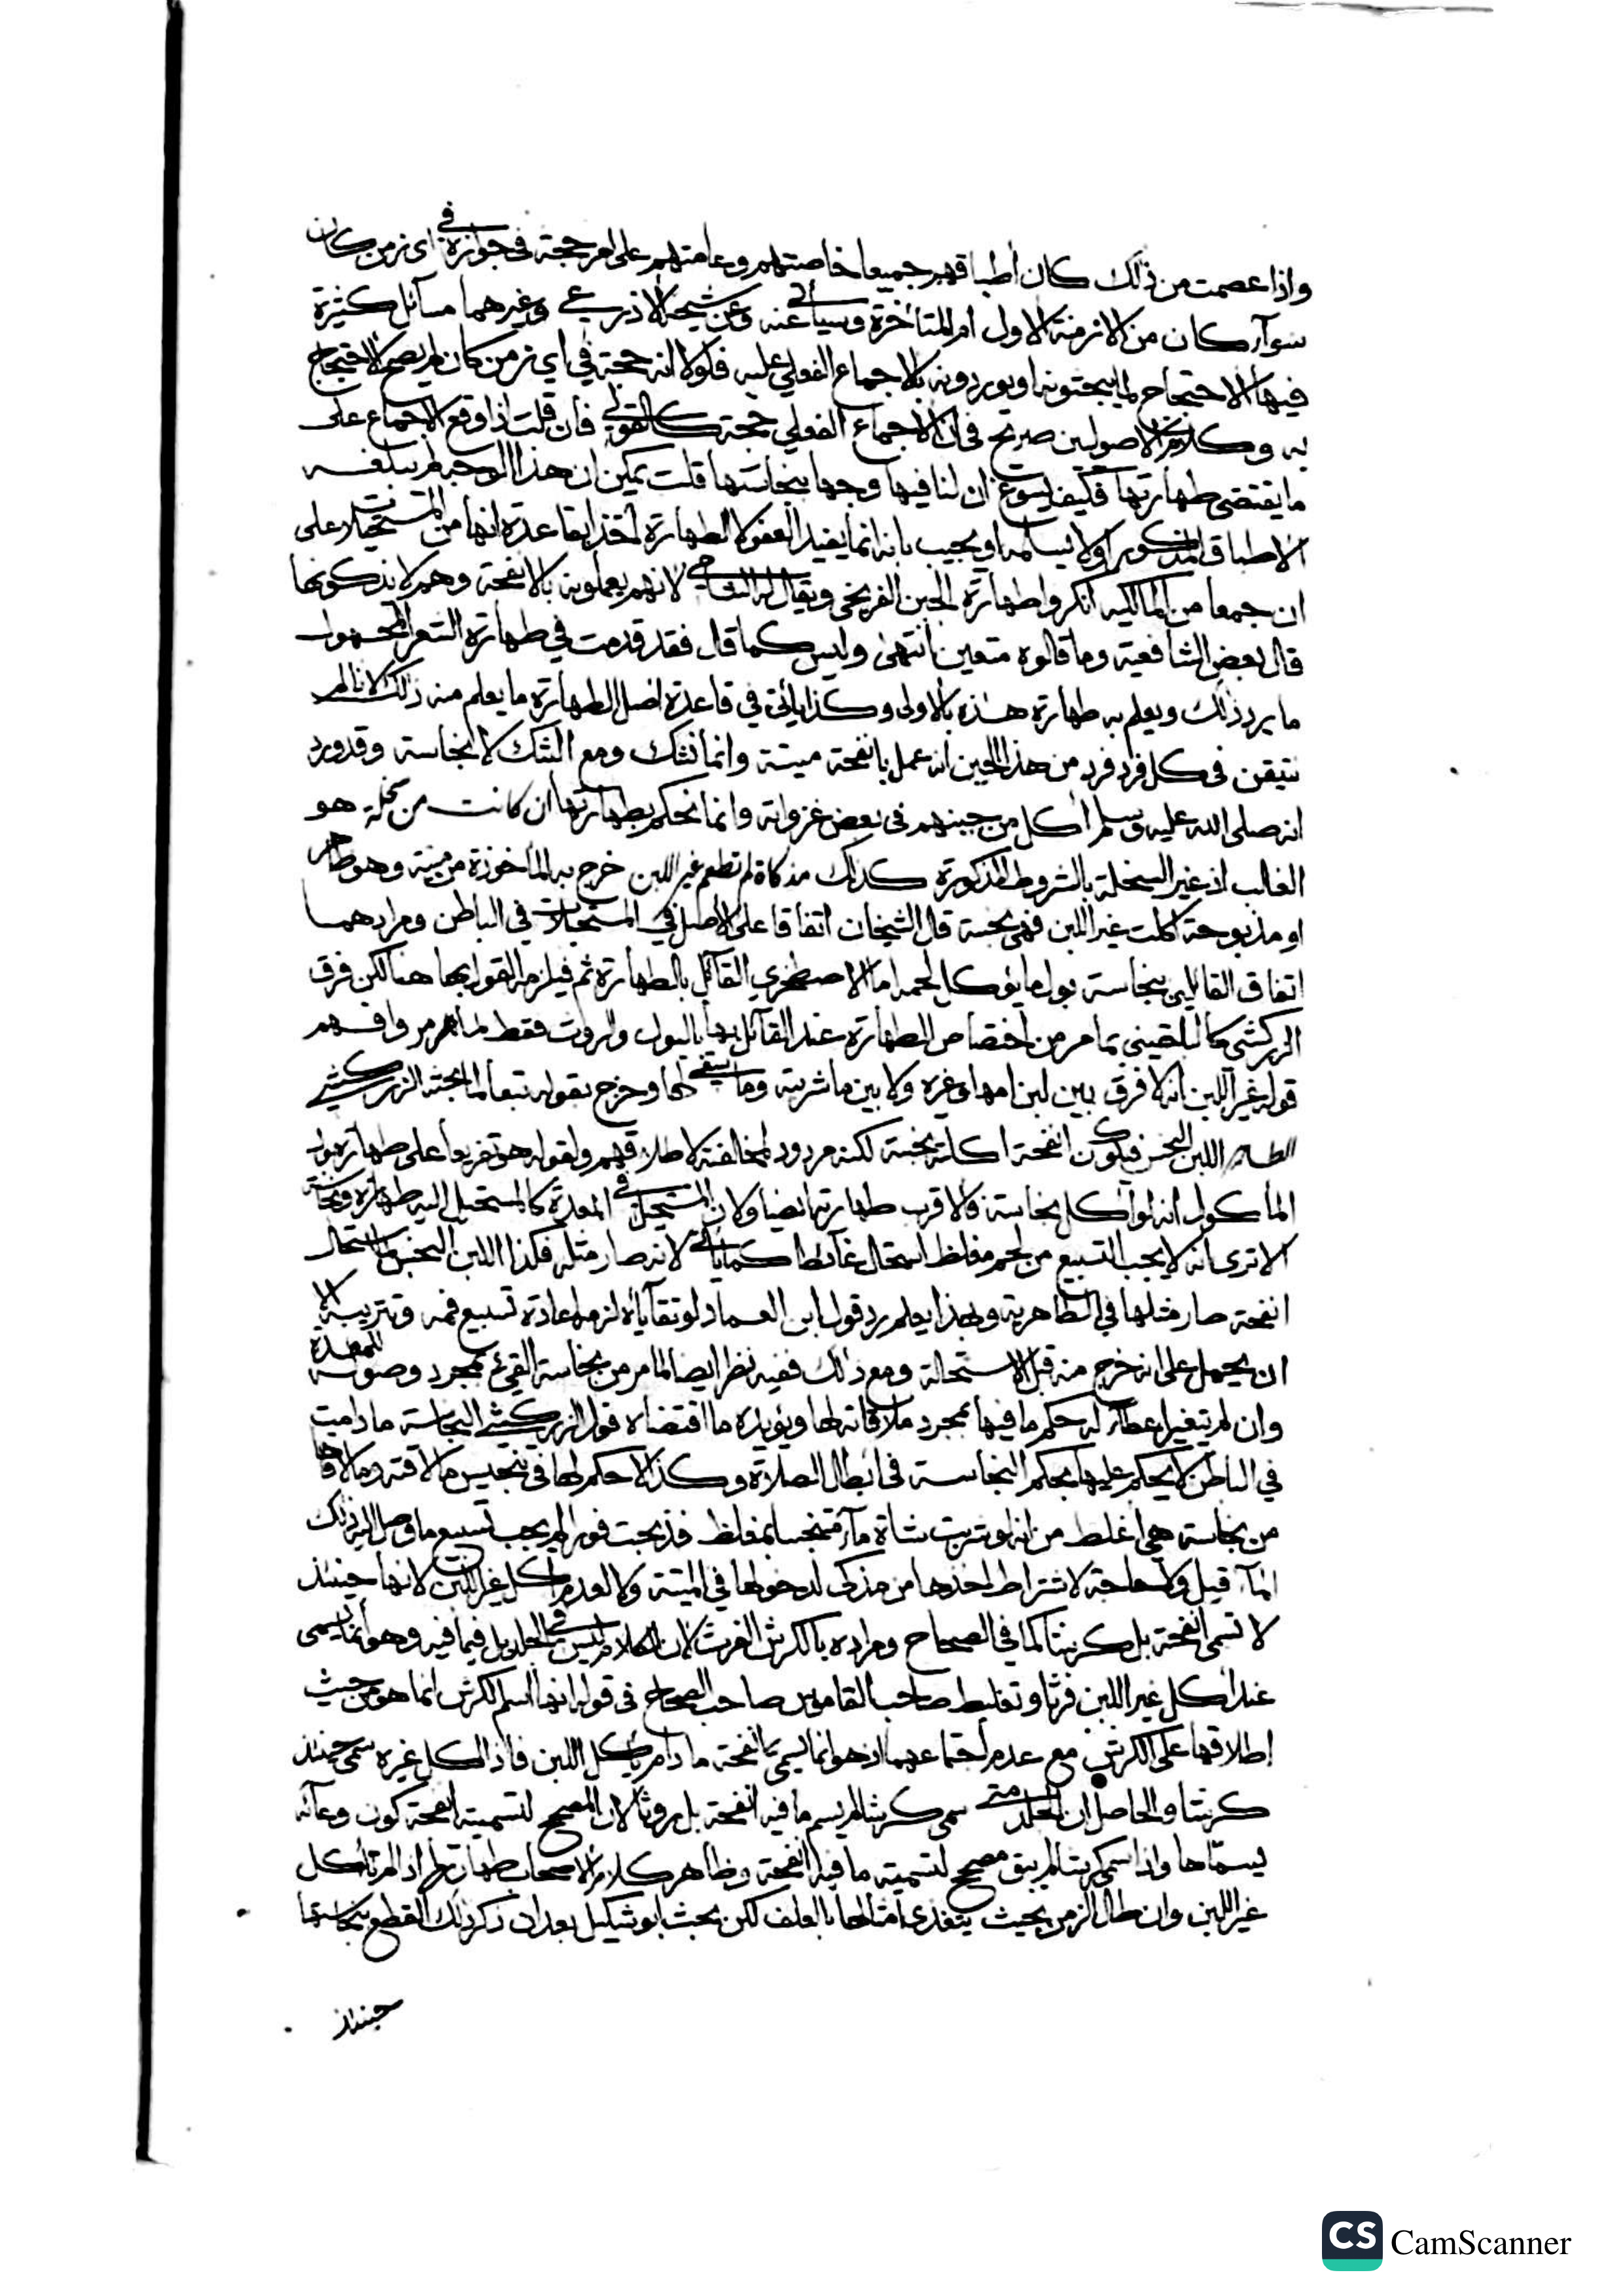 واذا عصمت من ذلك كان أطباقهم جميعا خاصتهم وعامتهم على امر حجة في جوازه في اي زمن كان
سوآء كان من الازمنة الاول ام المتأخرة وسيأتي عنه وعن شيخه الاذرعي وغيرهما مسآئل كثيرة
فيها الاحتجاج لما يبحثونه او يوردونه بالاجماع الفعلي عليه فلولا انه حجة في اي زمن كان لم يصح الاحتجاج
به وكلام الاصوليين صريح في ان الاجماع الفعلي حجة كالقولي فان قلت اذا وقع الاجماع على
ما يقتضي طهارتها فكيف يسوغ ان لنا فيها وجها بنجاستها قلت يمكن ان هذا الوجه لم يبلغه
الاطباق المذكور اولا يسلمه او يجيب بانه انما يفيد العفو لا الطهارة أخذا بقاعدة انها من المستحيلات على
ان جمعا من المالكية انكروا طهارة الجبن الفرنجي ويقال له الشامي لانهم يعملونه بالانفحة وهم لا يذكونها
قال بعض الشافعية وما قالوه متعين انتهى وليس كما قال فقد قدمت في طهارة الشعر المجهول
ما يرد ذلك ويعلم به طهارة هذه بالاولى وكذا يأتي في قاعدة اصل الطهارة ما يعلم منه ذلك لانا لم
نتيقن في كل فرد فرد من هذا الجبن انه عمل بانفحة ميتة وانما نشك ومع الشك لا نجاسة وقد ورد
انه صلى الله عليه وسلم أكل من جبنهم في بعض غزواته وانما نحكم بطهارتها ان كانت من سخلة هو
الغالب اذ غير السخلة بالشروط المذكورة كذلك مذكاة لم تطعم غير اللبن خرج به المأخوذة من ميتة وهو ظاهر
او مذبوحة اكلت غير اللبن فهي نجسة قال الشيخان اتفاقا على الاصل في المستحيلات في الباطن ومرادهما
اتفاق القائلين بنجاسة بول ما يؤكل لحمه اما الاصطخري القآئل بالطهارة ثم فيلزمه القول بها هنا لكن فرق
الزركشي كالبلقيني بما مر من اختصاص الطهارة عند القآئل بها بالبول والروث فقط لما مر وافهم
قوله غير اللبن انه لا فرق بين لبن امها وغيره ولا بين ما شربته وما سقي لها وخرج بقوله تبعا لما بحثه الزركشي
الطاهر اللبن النجس فيكون انفحة اكلته نجسة لكنه مردود لمخالفته لاطلاقهم ولقوله هو تفريعا على طهارة بول
المأكول انه لو أكل نجاسة فالاقرب طهارته ايضا ولان المستحيل في المعدة كالمستحيل اليه طهارة ونجاسة
الا ترى انه لا يجب التسبيع من لحم مغلظ استحال غآئطا كما يأتي لانه صار مثله فكذا اللبن النجس استحال
انفحة صار مثلها في الطاهرية وبهذا يعلم رد قول ابن العماد لو تقاياه لزمه اعادة تسبيع فمه وتتريبه الا
ان يحمل على انه خرج منه قبل الاستحالة ومع ذلك ففيه نظر ايضا لما مر من نجاسة القيء بمجرد وصوله للمعدة
وان لم يتغير اعطآء له حكم ما فيها بمجرد ملاقاته لها ويؤيده ما اقتضاه قول الزركشي النجاسة ما دامت
في الباطن لا يحكم عليها بحكم النجاسة في ابطال الصلاة وكذا لا حكم لها في تنجيس ما لاقته وما لاقاها
من نجاسة هي اغلظ من انه لو شربت شاة مآء متنجسا بمغلظ فذبحت فورا لم يجب تسبيع ما وصل اليه ذلك
المآء قيل ولا حاجة لاشتراط اخذها من مذكى لدخولها في الميتة ولا لعدم اكل غير اللبن لانها حينئذ
لا تسمى انفحة بل كرشا كما في الصحاح ومراده بالكرش الفرث لان الكلام ليس في الجلد بل فيما فيه وهو انما يسمى
عند اكل غير اللبن فرثا وتغليط صاحب القاموس صاحب الصحاح في قوله انها اسم لكرش انما هو من حيث
إطلاقها على الكرش مع عدم اجتماعهما اذ هو انما يسمى انفحة ما دام يأكل اللبن فاذا اكل غيره سمي حينئذ
كرشا والحاصل ان الجلد متى سمي كرشا لم يسم ما فيه انفحة بل روثا لان المصحح لتسميته انفحة كون وعائه
يسماها واذا سمي كرشا لم يبق مصحح لتسمية ما فيه انفحة وظاهر كلام الاصحاب طهارتها اذا لم تأكل
غير اللبن وان طال الزمن بحيث يتغذى امثالها بالعلف لكن بحث ابو شكيل بعد ان ذكر ذلك القطع بنجاستها
حينئذ
CS CamScanner